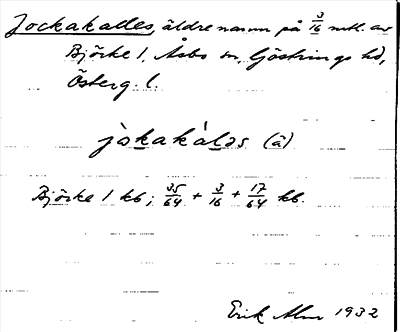 Jockakalles, äldre namn på 3/16 mtl. av
Björke 1, Åsbo sn, Göstrings hd,
Österg. l.
jòkakàləs (â)
Björke 1 kb; 35/64 + 3/16 + 17/64 kb.
Erik Alm 1932